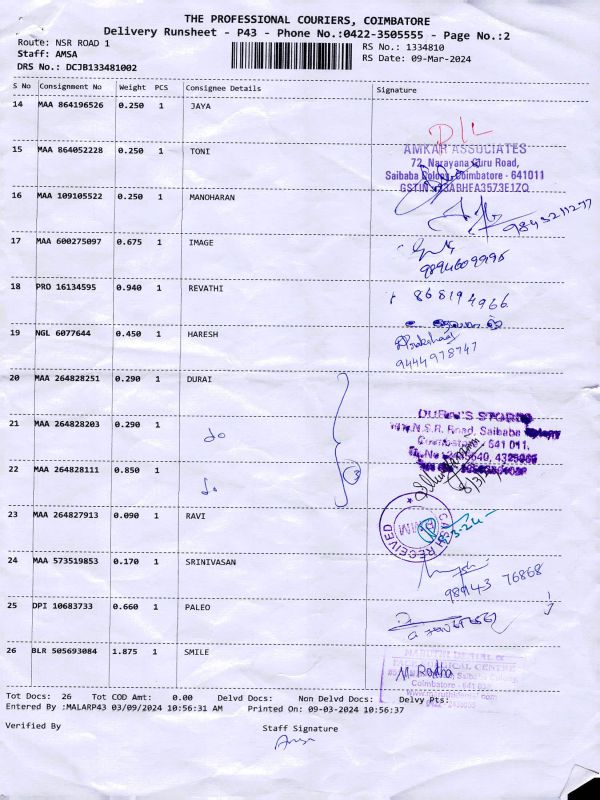 THE PROFESSIONAL COURIERS, COIMBATORE
Delivery Runsheet - P43 - Phone No.:0422-3505555 - Page No.:2
Route: NSR ROAD 1
RS No.: 1334810
Staff: AMSA
RS Date: 09-Mar-2024
DRS No.: DCJB133481002
S No Consignment No Weight PCS Consignee Details Signature
14 MAA 864196526 0.250 1 JAYA
D/L
15 MAA 864052228 0.250 1 TONI
AMKAR ASSOCIATES
72, Narayana Guru Road,
Saibaba Colony, Coimbatore - 641011
GSTIN : 33ABHFA3573E1ZQ
16 MAA 109105522 0.250 1 MANOHARAN
17 MAA 600275097 0.675 1 IMAGE
9894609996
18 PRO 16134595 0.940 1 REVATHI
868194966
19 NGL 6077644 0.450 1 HARESH
9444978747
20 MAA 264828251 0.290 1 DURAI
21 MAA 264828203 0.290 1 do
DURAI'S STORES
N.S.R. Road, Saibaba Colony
Coimbatore - 641 011,
22 MAA 264828111 0.850 1 do
3
23 MAA 264827913 0.090 1 RAVI
CASH RECEIVED
24 MAA 573519853 0.170 1 SRINIVASAN
98943 76868
25 DPI 10683733 0.660 1 PALEO
26 BLR 505693084 1.875 1 SMILE
MARUTHI DENTAL &
Saibaba Colony,
Coimbatore - 641
M Radha
Tot Docs: 26 Tot COD Amt: 0.00 Delvd Docs: Non Delvd Docs: Delvy Pts:
Entered By :MALARP43 03/09/2024 10:56:31 AM Printed On: 09-03-2024 10:56:37
Verified By Staff Signature
Amsa